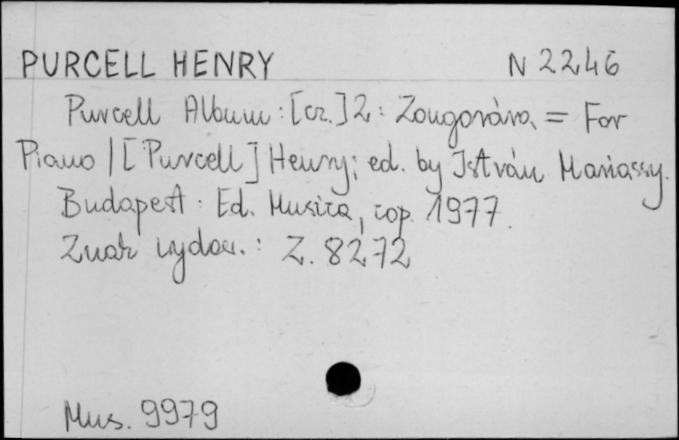 PURCELL HENRY N 2246
Purcell Album : [cz.] 2 : Zongorára = For
Piano / [Purcell] Henry; ed. by István Máriassy.
Budapest : Ed. Musica, cop. 1977.
Znak wydaw. : Z. 8272
Mus. 9979